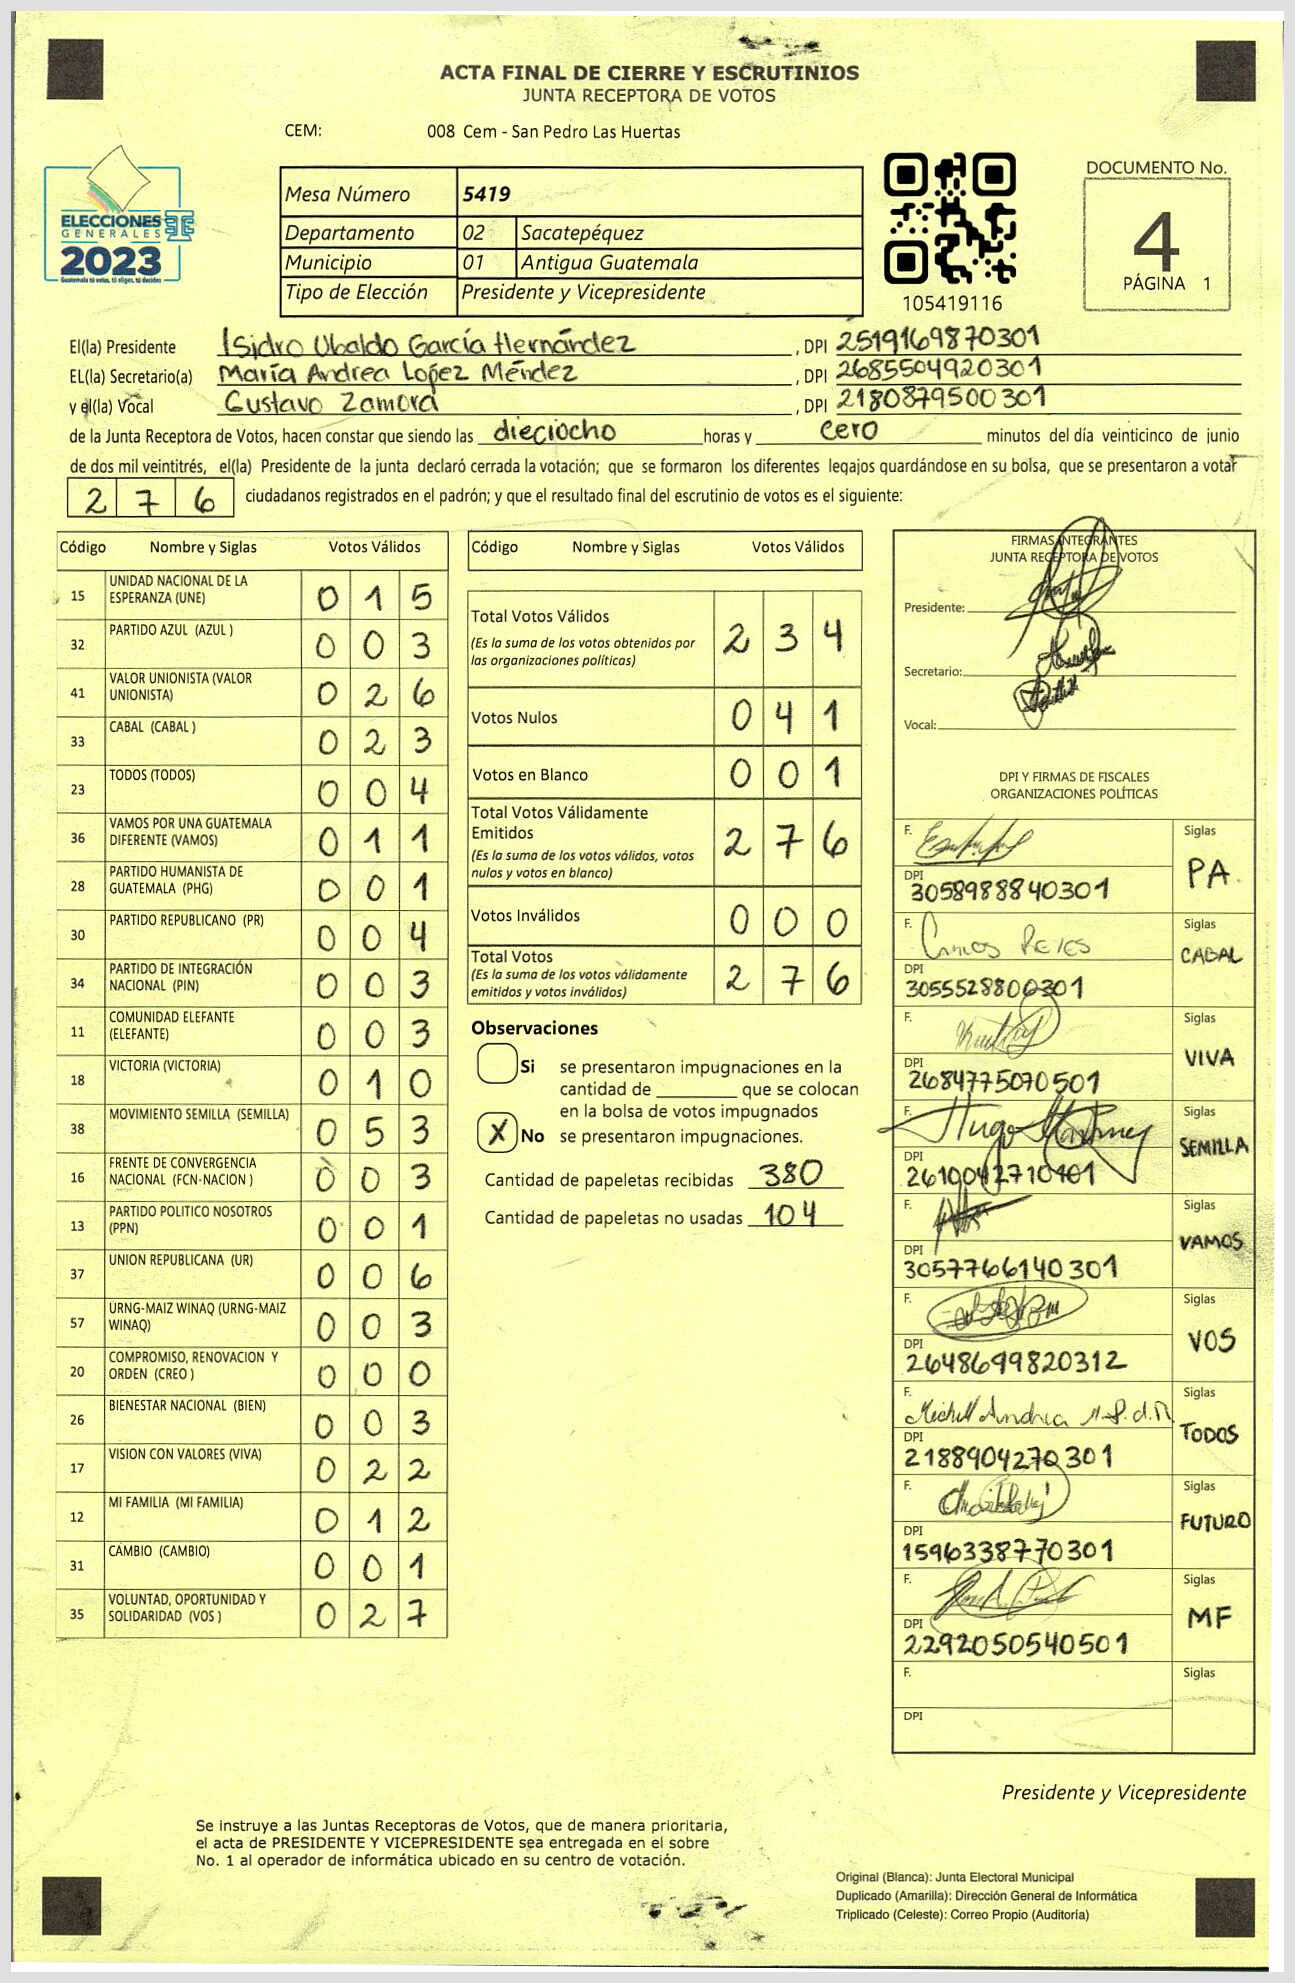 ACTA FINAL DE CIERRE Y ESCRUTINIOS
JUNTA RECEPTORA DE VOTOS
CEM: 008 Cem - San Pedro Las Huertas
ELECCIONES
GENERALES
2023
Guatemala tú votas, tú eliges, tú decides
Mesa Número 5419
Departamento 02 Sacatepéquez
Municipio 01 Antigua Guatemala
Tipo de Elección Presidente y Vicepresidente
105419116
DOCUMENTO No.
4
PÁGINA 1
El(la) Presidente Isidro Ubaldo García Hernández , DPI 2519169870301
EL(la) Secretario(a) María Andrea López Méndez , DPI 2685504920301
y el(la) Vocal Gustavo Zamora , DPI 2180879500301
de la Junta Receptora de Votos, hacen constar que siendo las dieciocho horas y cero minutos del día veinticinco de junio
de dos mil veintitrés, el(la) Presidente de la junta declaró cerrada la votación; que se formaron los diferentes legajos guardándose en su bolsa, que se presentaron a votar
276 ciudadanos registrados en el padrón; y que el resultado final del escrutinio de votos es el siguiente:
Código Nombre y Siglas Votos Válidos
15 UNIDAD NACIONAL DE LA ESPERANZA (UNE) 015
32 PARTIDO AZUL (AZUL ) 003
41 VALOR UNIONISTA (VALOR UNIONISTA) 026
33 CABAL (CABAL ) 023
23 TODOS (TODOS) 004
36 VAMOS POR UNA GUATEMALA DIFERENTE (VAMOS) 011
28 PARTIDO HUMANISTA DE GUATEMALA (PHG) 001
30 PARTIDO REPUBLICANO (PR) 004
34 PARTIDO DE INTEGRACIÓN NACIONAL (PIN) 003
11 COMUNIDAD ELEFANTE (ELEFANTE) 003
18 VICTORIA (VICTORIA) 010
38 MOVIMIENTO SEMILLA (SEMILLA) 053
16 FRENTE DE CONVERGENCIA NACIONAL (FCN-NACION ) 003
13 PARTIDO POLITICO NOSOTROS (PPN) 001
37 UNION REPUBLICANA (UR) 006
57 URNG-MAIZ WINAQ (URNG-MAIZ WINAQ) 003
20 COMPROMISO, RENOVACION Y ORDEN (CREO ) 000
26 BIENESTAR NACIONAL (BIEN) 003
17 VISION CON VALORES (VIVA) 022
12 MI FAMILIA (MI FAMILIA) 012
31 CAMBIO (CAMBIO) 001
35 VOLUNTAD, OPORTUNIDAD Y SOLIDARIDAD (VOS ) 027
Código Nombre y Siglas Votos Válidos
Total Votos Válidos 234
(Es la suma de los votos obtenidos por
las organizaciones políticas)
Votos Nulos 041
Votos en Blanco 001
Total Votos Válidamente
Emitidos 276
(Es la suma de los votos válidos, votos
nulos y votos en blanco)
Votos Inválidos 000
Total Votos 276
(Es la suma de los votos válidamente
emitidos y votos inválidos)
Observaciones
Si se presentaron impugnaciones en la
cantidad de ________ que se colocan
en la bolsa de votos impugnados
X No se presentaron impugnaciones.
Cantidad de papeletas recibidas 380
Cantidad de papeletas no usadas 104
FIRMAS INTEGRANTES
JUNTA RECEPTORA DE VOTOS
Presidente:
Secretario:
Vocal:
DPI Y FIRMAS DE FISCALES
ORGANIZACIONES POLÍTICAS
F. Siglas
DPI 3058988840301 PA.
F. Carlos Reyes Siglas
DPI 3055528800301 CABAL
F. Siglas
DPI 2684775070501 VIVA
F. Hugo Siglas
DPI 2610042710101 SEMILLA
F. Siglas
DPI 3057766140301 VAMOS
F. Siglas
DPI 2648699820312 VOS
F. Michell Andrea Siglas
DPI 2188904270301 TODOS
F. Siglas
DPI 1596338770301 FUTURO
F. Siglas
DPI 2292050540501 MF
F. Siglas
DPI
Presidente y Vicepresidente
Se instruye a las Juntas Receptoras de Votos, que de manera prioritaria,
el acta de PRESIDENTE Y VICEPRESIDENTE sea entregada en el sobre
No. 1 al operador de informática ubicado en su centro de votación.
Original (Blanca): Junta Electoral Municipal
Duplicado (Amarilla): Dirección General de Informática
Triplicado (Celeste): Correo Propio (Auditoría)